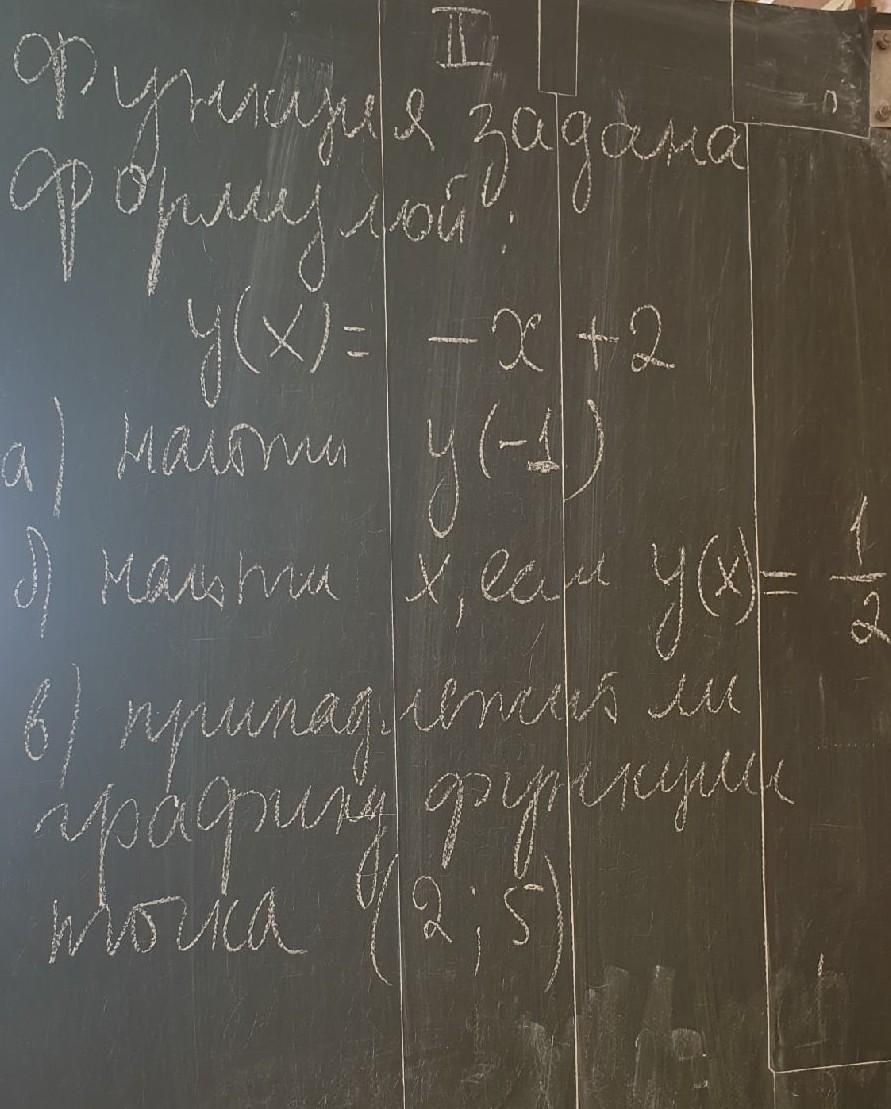 II
Функция задана
формулой:
y(x) = -x + 2
а) найти y(-1)
б) найти x, если y(x) = 1/2
в) принадлежит ли
графику функции
точка (2; 5)